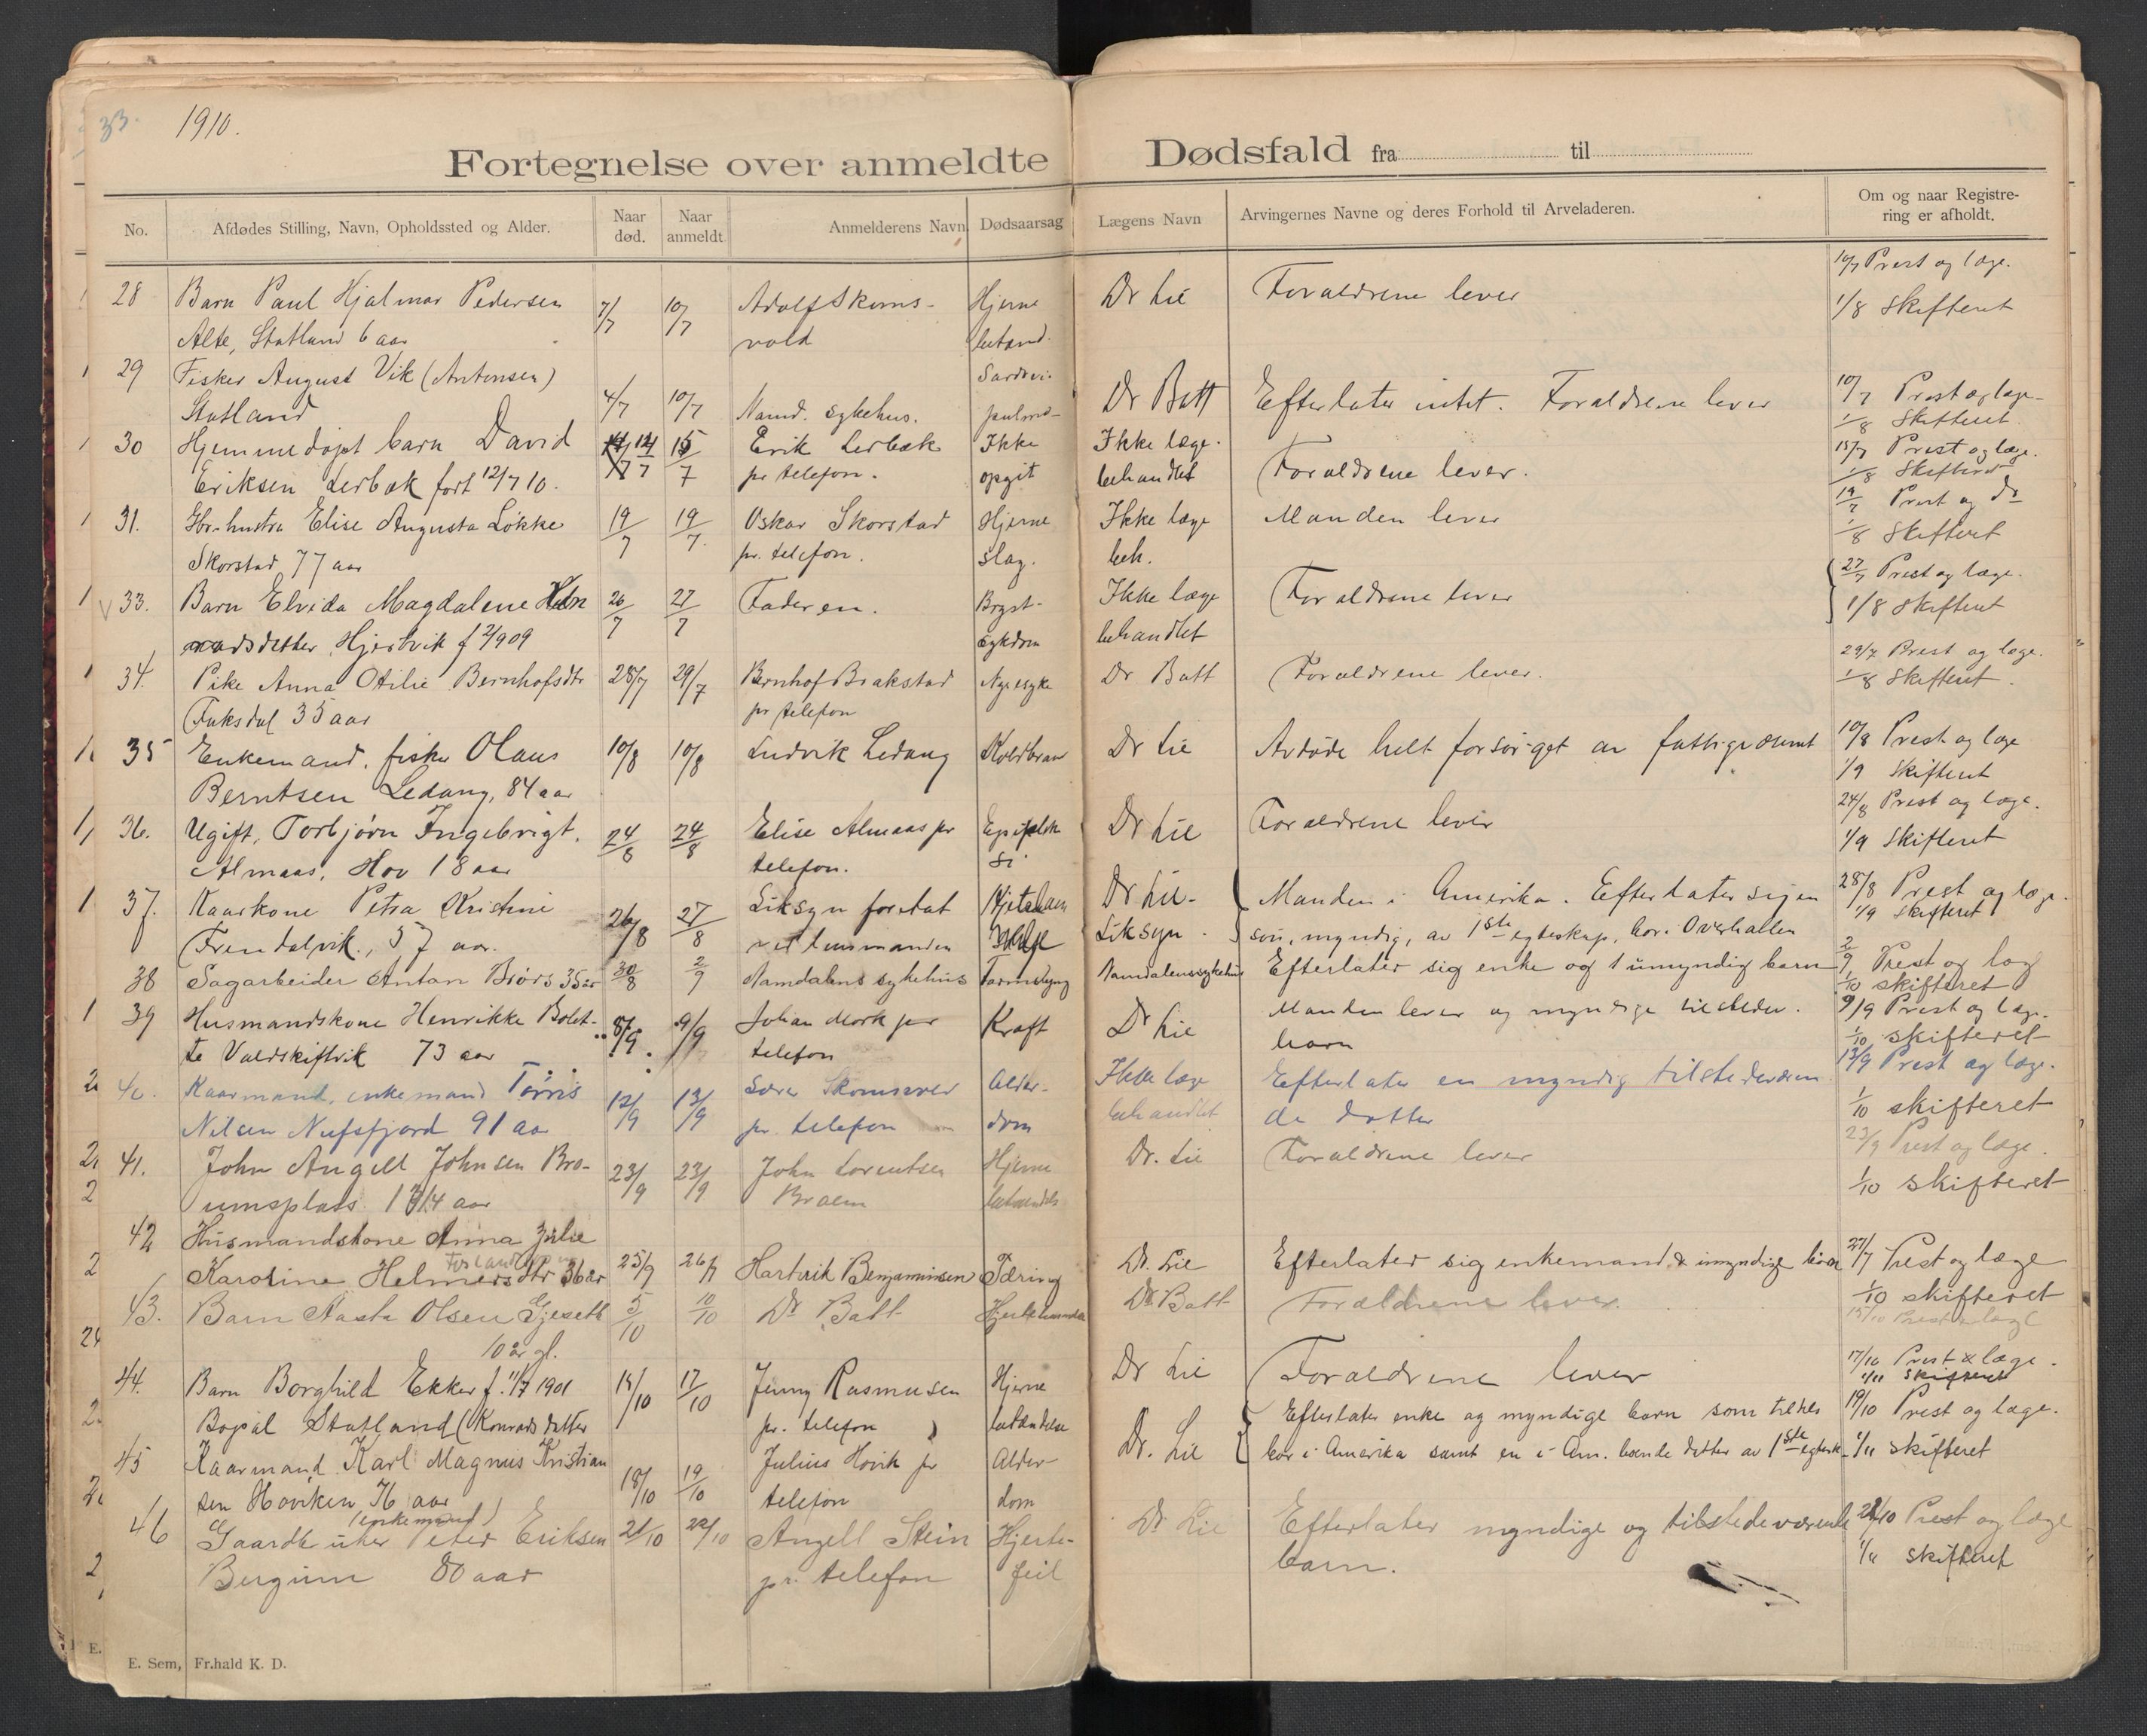 33.
1910.
Fortegnelse over anmeldte Dødsfald fra til
No.
Afdødes Stilling, Navn, Opholdssted og Alder.
Naar død.
Naar anmeldt.
Anmelderens Navn
Dødsaarsag
Lægens Navn
Arvingernes Navne og deres Forhold til Arveladeren.
Om og naar Registrering er afholdt.
28 Barn Paul Hjalmar Pedersen 7/7 10/7 Adolf Skoms- Hjerne Dr Lie Foraldrene lever 10/7 Prest og læge.
Alte, Statland 6 aar vold betænd. 1/8 Skifteret
29 Fisker August Vik (Antonsen)
Statland 4/7 10/7 Namd. sykehus. Dr Batt Efterlater intet. Foraldrene lever 10/7 Prest og læge
1/8 Skifteret
30 Hjemmedøpt barn David 14/7 15/7 Erik Lerbæk Ikke Ikke læge- Foraldrene lever. 15/7 Prest og læge.
Eriksen Lerbæk født 12/7 10. pr telefon. opgit behandlet 1/8 Skifteret
31. Gbr-hustru Elise Augusta Løkke 19/7 19/7 Oskar Skorstad Hjerne Ikke læge Manden lever 19/7 Prest og do
Skorstad 77 aar pr. telefon. slag. beh. 1/8 Skifteret
33. Barn Elvida Magdalene 26/7 27/7 Faderen. Bryst- Ikke læge Foraldrene lever 27/7 Prest og læge.
Hjertvik f 2/9 09 sykdom behandlet 1/8 Skifteret
34. Pike Anna Otilie Bernhofsdtr 28/7 29/7 Bernhof Brakstad Nyresyke Dr Batt Foraldrene lever. 29/7 Prest og læge.
Fuksdal 35 aar pr telefon 1/8 Skifteret.
35 Enkemand, fisker Olaus 10/8 10/8 Ludvik Ledang Koldbran Dr Lie Avdøde helt forsørget av fattigvæsenet 10/8 Prest og læge
Berntsen Ledang, 84 aar 1/9 Skifteret
36. Ugift, Torbjørn Ingebrigt. 24/8 24/8 Elise Almaas pr Dr Lie Foraldrene lever 24/8 Prest og læge.
Almaas, Hov 18 aar telefon. 1/9 Skifteret
37. Kaarkone Petra Kristine 26/8 27/8 Liksyn foretat Dr Lie- Manden i Amerika. Efterlater sig en 28/8 Prest og læge.
Frendalvik, 57 aar. ved lensmanden Liksyn. søn, myndig, av 1ste egteskap, bor i Overhallen 1/9 Skifteret
38 Sagarbeider Anton Brørs 35 aar 30/8 2/9 Namdalens sykehus Tarmslyng Namdalens sykehus Efterlater sig enke og 1 umyndig barn 2/9 Prest og læg
1/10 skifteret
39 Husmandskone Henrikke Bolet- 8/9. 9/9 Johan Mork pr Kræft Dr Lie Manden lever og myndige tilsteder. 9/9 Prest og læg.
te Valdskiftvik 73 aar telefon barn 1/10 skifteret
40. Kaarmand, enkemand Tørris 12/9 13/9 Alder- Ikke læge Efterlater en myndig tilstedeværen 13/9 Prest og læge.
Nilsen Nufsfjord 91 aar pr. telefon dom behandlet de datter 1/10 skifteret
41. John Angell Johnsen Bra- 23/9 23/9 John Lorentsen Hjerne Dr. Lie Foraldrene lever 23/9 Prest og læge.
umsplads aar Braem betændels 1/10 skifteret
42 Husmandskone Anna Julie
Karoline Helmersdtr 36 aar 25/9 26/9 Hartvik Benjaminsen Tæring Dr. Lie Efterlater sig enkemand & umyndige børn 27/7 Prest og læge
1/10 skifteret
43. Barn Aasta Olsen Gjeseth 5/10 10/10 Dr Batt Dr Batt Foraldrene lever. 15/10 Prest & læge
10 år gl.
44. Barn Borghild Ekker f. 11/7 1901 15/10 17/10 Jenny Rasmusen Hjerne Dr Lie Foraldrene lever 17/10 Prest & læge.
Bopæl Statland (Konradsdatter pr. telefon betændelse 1/11 Skifteret
45 Kaarmand Karl Magnus Kristian 18/10 19/10 Julius Hovik pr Alder- Dr. Lie Efterlater enke og myndige barn som 19/10 Prest og læge.
sen Hoviken 76 aar telefon dom bor i Amerika samt en i Am. boende datter av 1ste egtesk. 1/11 skifteret
(enkemand)
46 Gaardbruker Peter Eriksen 21/10 22/10 Angell Stein Hjerte- Dr Lie Efterlater myndige og tilstedeværende 21/10 Prest og læge
Bergum 80 aar pr. telefon feil barn. 1/11 skifteret
E. Sem, Fr.hald K. D.